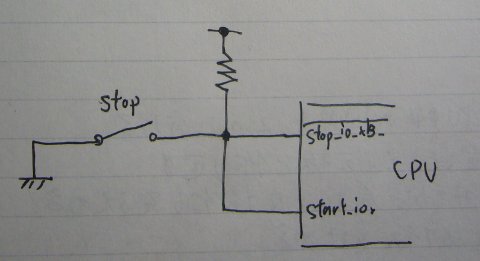 stop
stop_io_
CPU
start_io,